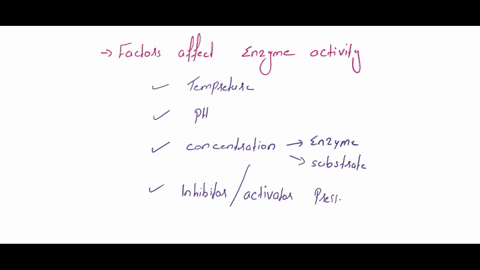 → Factors affect Enzyme activity
✓ Tempreture
✓ PH
✓ concentration → Enzyme
→ substrate
✓ Inhibitor / activator Press.